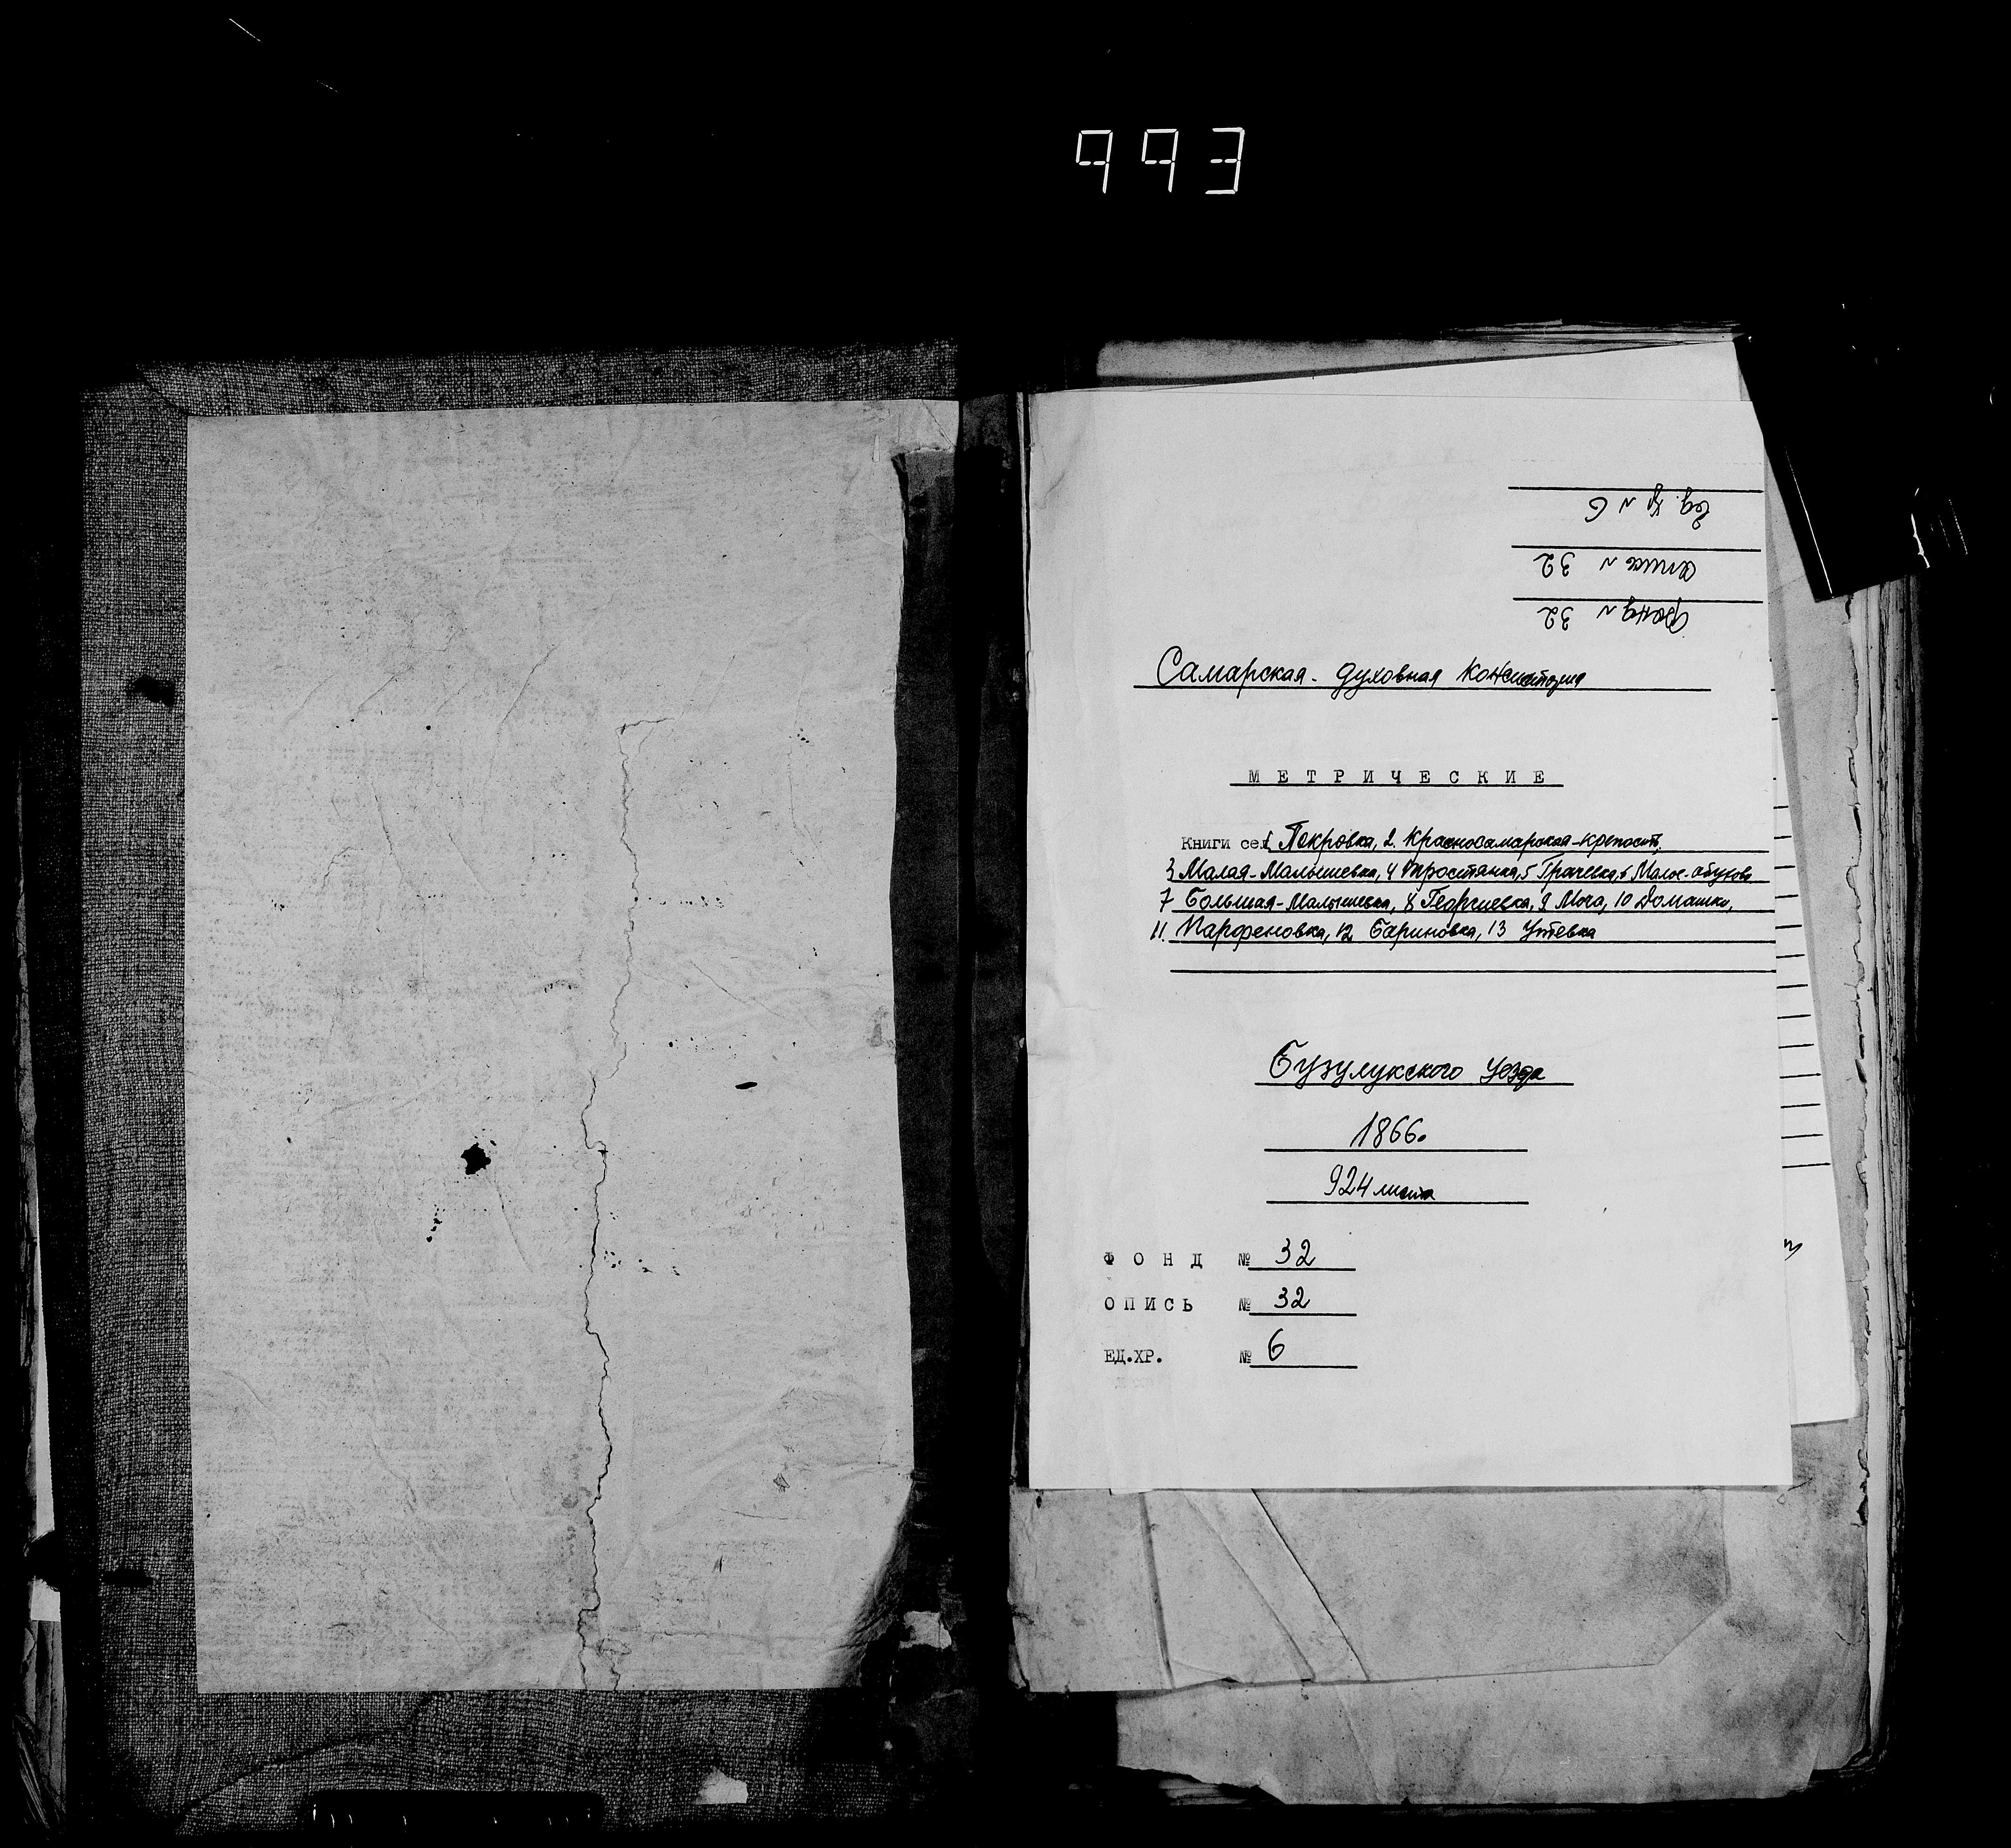 993
Ед. хр. N 6
опись N 32
Фонд N 32
Самарская - духовная консистория
МЕТРИЧЕСКИЕ
Книги сел 1 Покровка, 2. Красносамарская-крепость,
3 Малая-Малышевка, 4 Тростянка, 5 Грачевка, 6 Малое-
7 Большая-Малышевка, 8 Георгиевка, 9 Моча, 10 Домашки,
11. Парфеновка, 12 Бариновка, 13 Утевка
Бузулукского уезда
1866.
924 листа
ФОНД № 32
ОПИСЬ № 32
ЕД.ХР. № 6